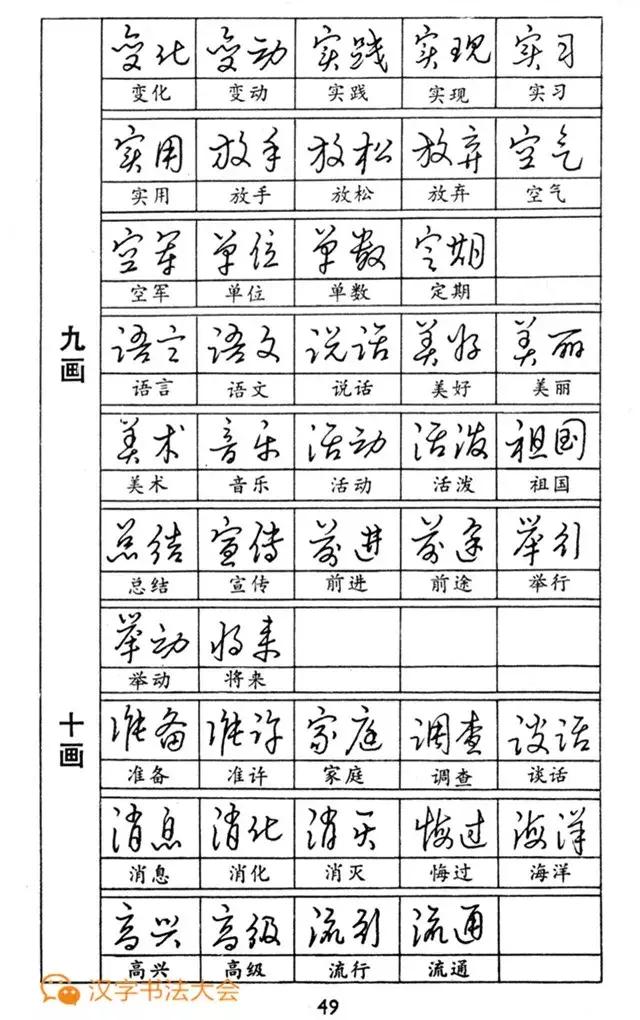 变化 变动 实践 实现 实习
变化 变动 实践 实现 实习
实用 放手 放松 放弃 空气
实用 放手 放松 放弃 空气
空军 单位 单数 定期
空军 单位 单数 定期
九画
语言 语文 说话 美好 美丽
语言 语文 说话 美好 美丽
美术 音乐 活动 活泼 祖国
美术 音乐 活动 活泼 祖国
总结 宣传 前进 前途 举行
总结 宣传 前进 前途 举行
举动 将来
举动 将来
十画
准备 准许 家庭 调查 谈话
准备 准许 家庭 调查 谈话
消息 消化 消灭 悔过 海洋
消息 消化 消灭 悔过 海洋
高兴 高级 流行 流通
高兴 高级 流行 流通
汉字书法大会
49